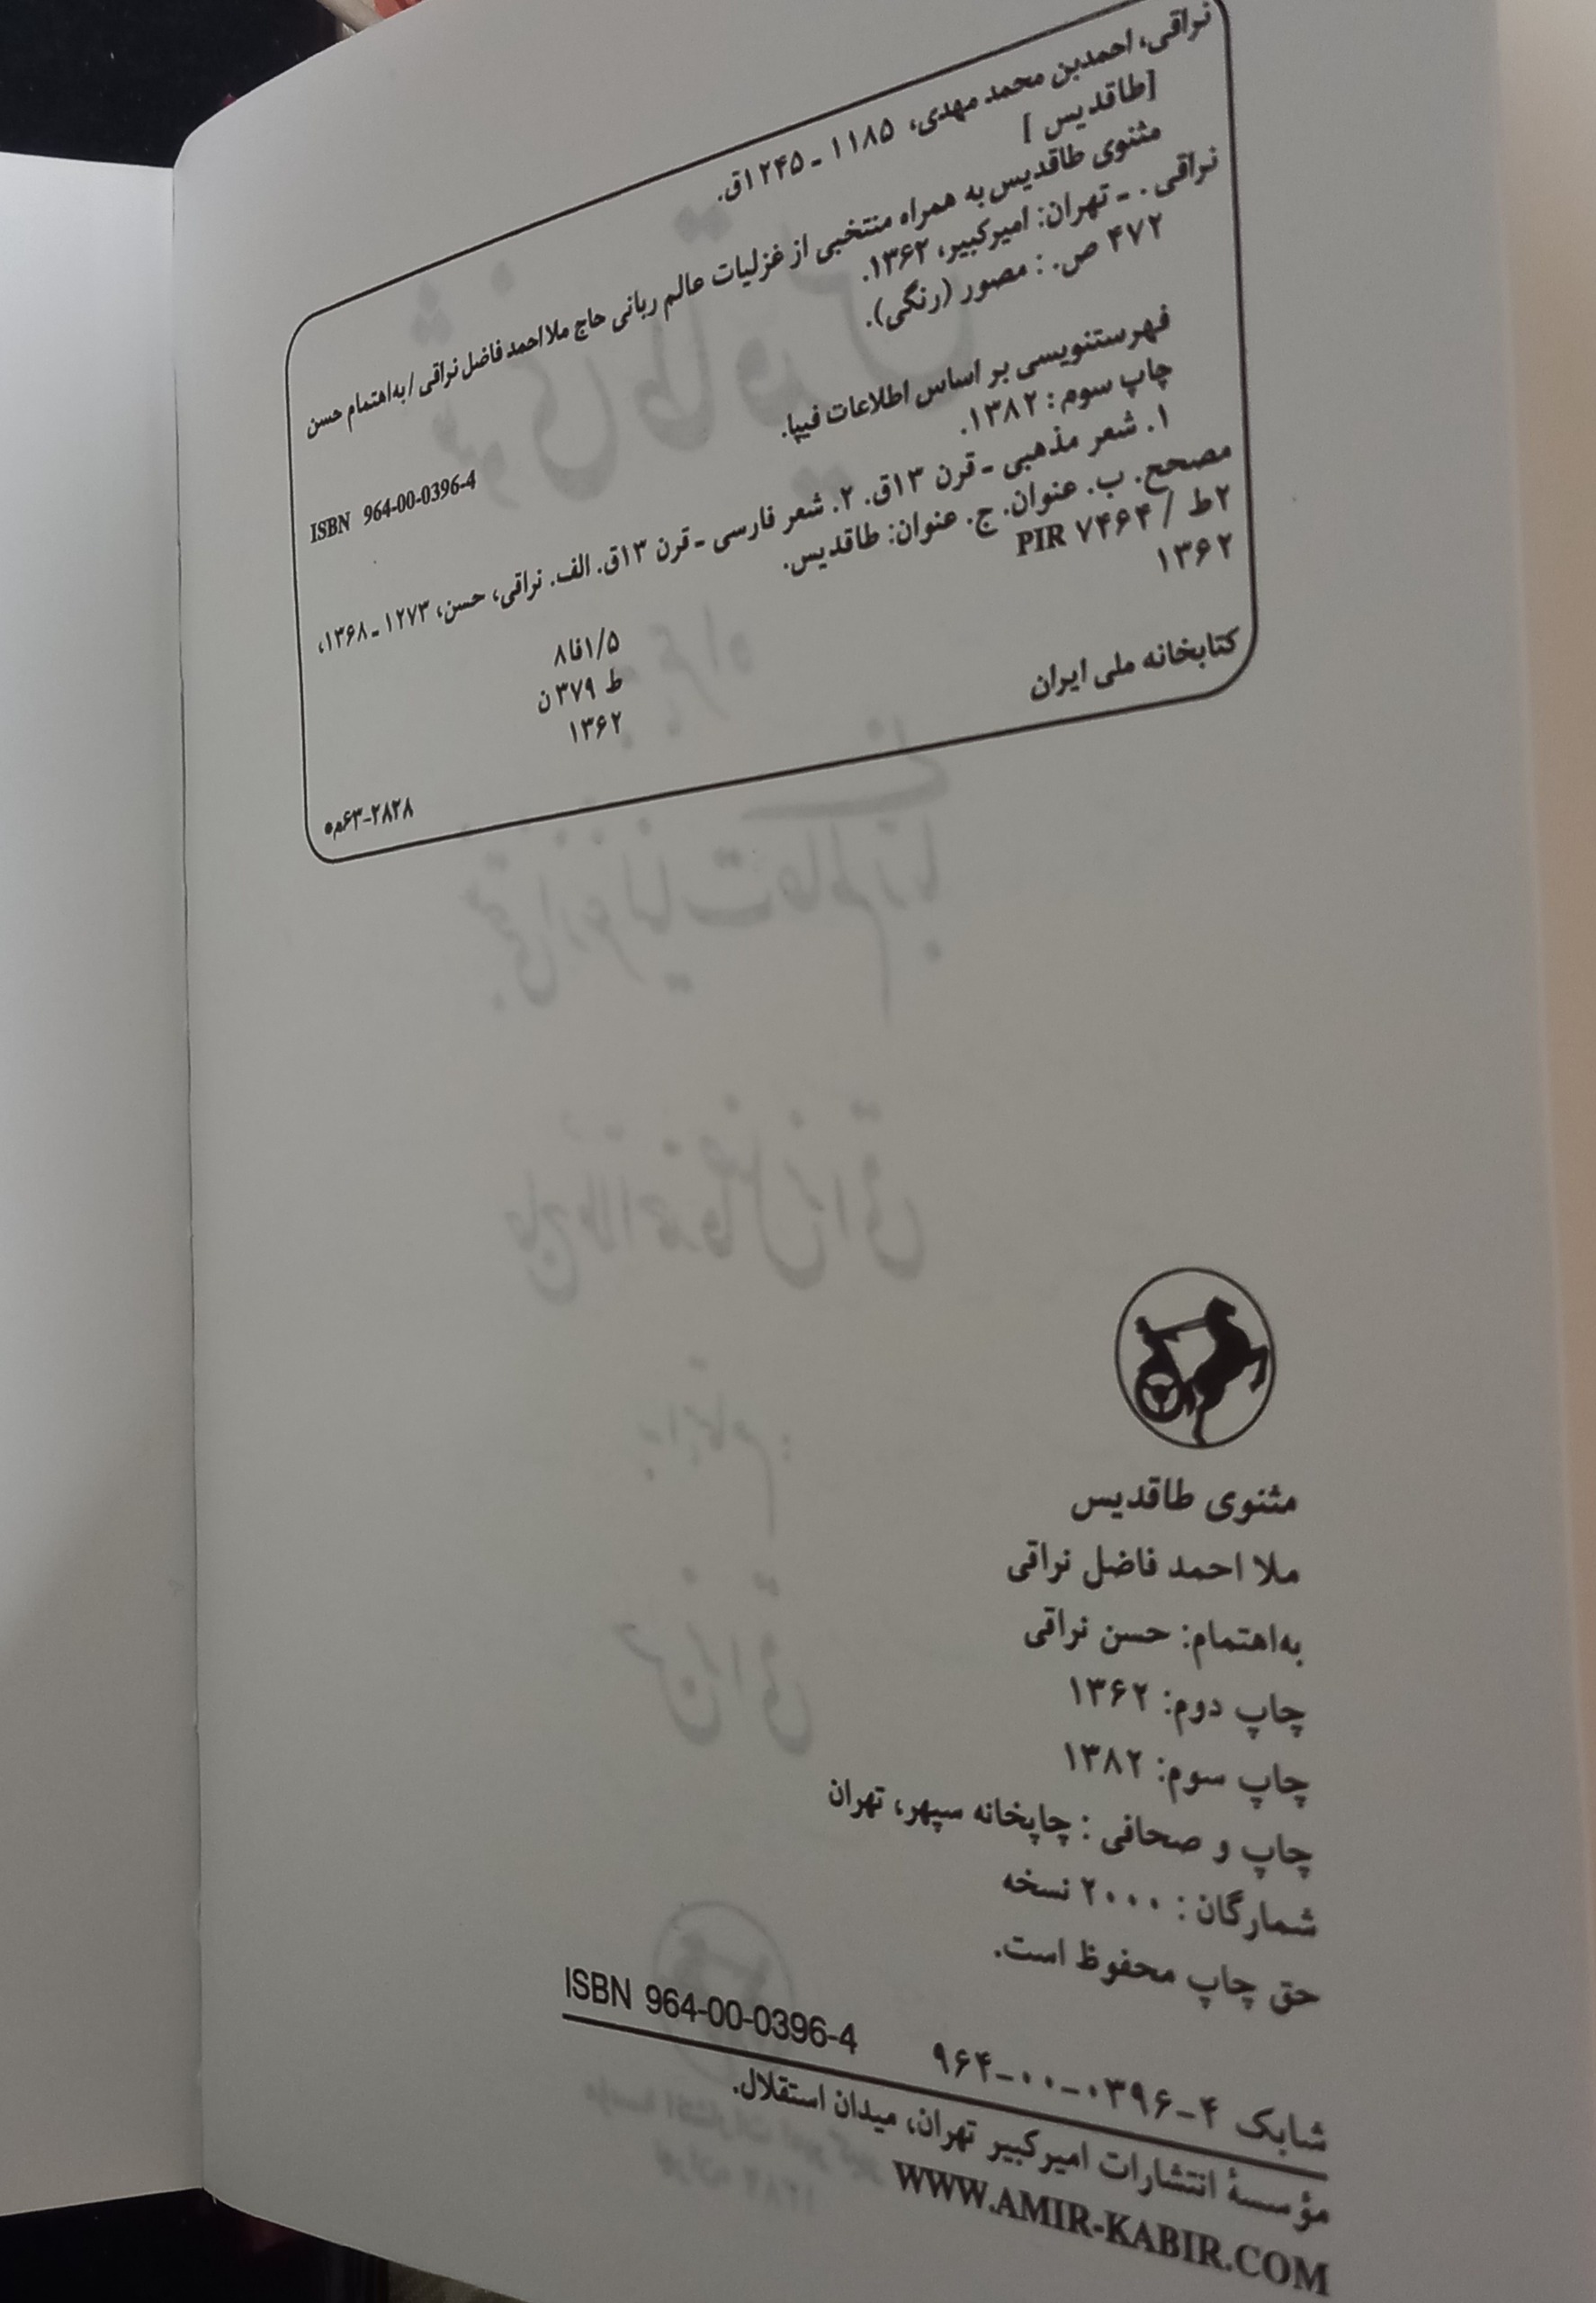 نراقی، احمدبن محمد مهدی، ۱۱۸۵ - ۱۲۴۵ق.
[طاقدیس]
مثنوی طاقدیس به همراه منتخبی از غزلیات عالم ربانی حاج ملااحمد فاضل نراقی / به‌اهتمام حسن
نراقی . - تهران: امیرکبیر، ۱۳۶۲.
۴۷۲ ص. : مصور (رنگی).
ISBN 964-00-0396-4
فهرستنویسی بر اساس اطلاعات فیپا.
چاپ سوم: ۱۳۸۲.
۱. شعر مذهبی - قرن ۱۳ق. ۲. شعر فارسی - قرن ۱۳ق. الف. نراقی، حسن، ۱۲۷۳ - ۱۳۶۸،
مصحح. ب. عنوان. ج. عنوان: طاقدیس.
۲ط / ۷۴۶۴ PIR
۱۳۶۲
۸فا۱/۵
ط ۳۷۹ن
۱۳۶۲
کتابخانه ملی ایران
۲۸۲۸-۶۳م
مثنوی طاقدیس
ملا احمد فاضل نراقی
به‌اهتمام: حسن نراقی
چاپ دوم: ۱۳۶۲
چاپ سوم: ۱۳۸۲
چاپ و صحافی : چاپخانه سپهر، تهران
شمارگان : ۲۰۰۰ نسخه
حق چاپ محفوظ است.
شابک ۴-۰۳۹۶-۰۰-۹۶۴ ISBN 964-00-0396-4
مؤسسهٔ انتشارات امیرکبیر تهران، میدان استقلال.
WWW.AMIR-KABIR.COM